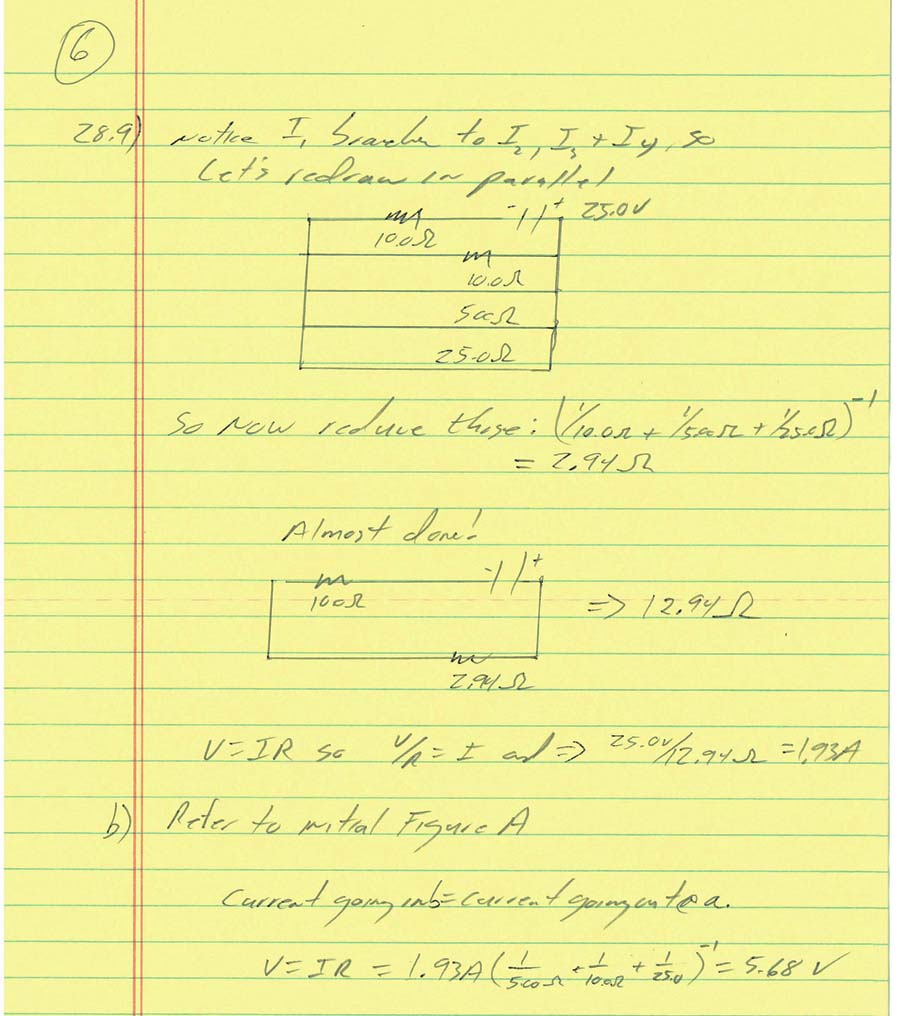 6
28.9) Notice I₁ branches to I₂, I₃ + I₄, so
Let's redraw in parallel
- + 25.0V
10.0Ω
10.0Ω
5.00Ω
25.0Ω
So now reduce these: (1/10.0Ω + 1/5.00Ω + 1/25.0Ω)⁻¹
= 2.94Ω
Almost done!
- +
10.0Ω
=> 12.94Ω
2.94Ω
V=IR so V/R = I and => 25.0V/12.94Ω = 1.93A
b) Refer to initial Figure A
Current going in b = current going out @ a.
V = IR = 1.93A (1/5.00Ω + 1/10.0Ω + 1/25.0)⁻¹ = 5.68 V